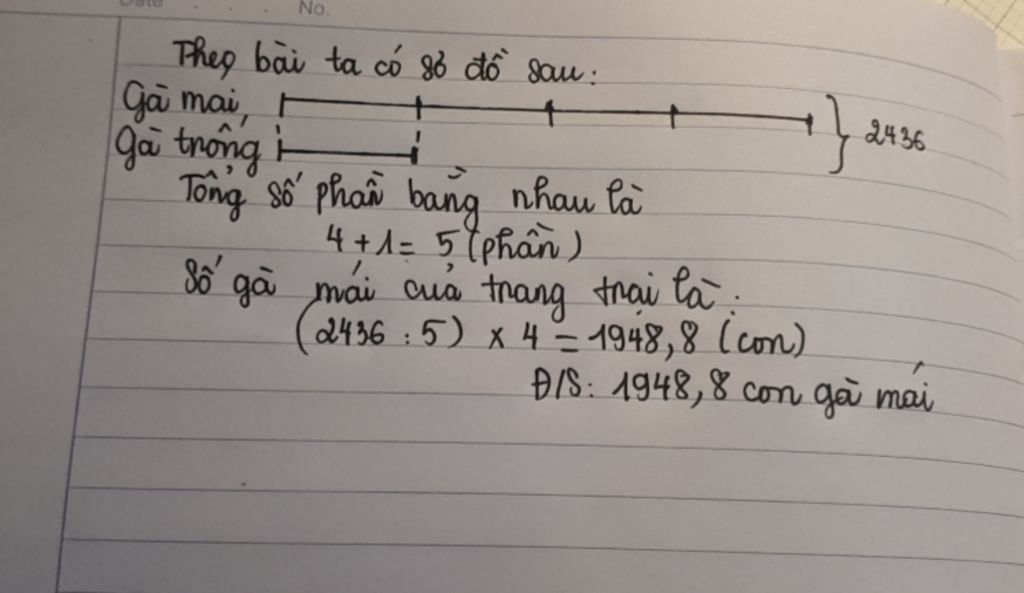 Date . . . No.
Theo bài ta có sơ đồ sau:
Gà mái
Gà trống
2436
Tổng số phần bằng nhau là
4 + 1 = 5 (phần)
Số gà mái của trang trại là:
(2436 : 5) x 4 = 1948,8 (con)
Đ/S: 1948,8 con gà mái